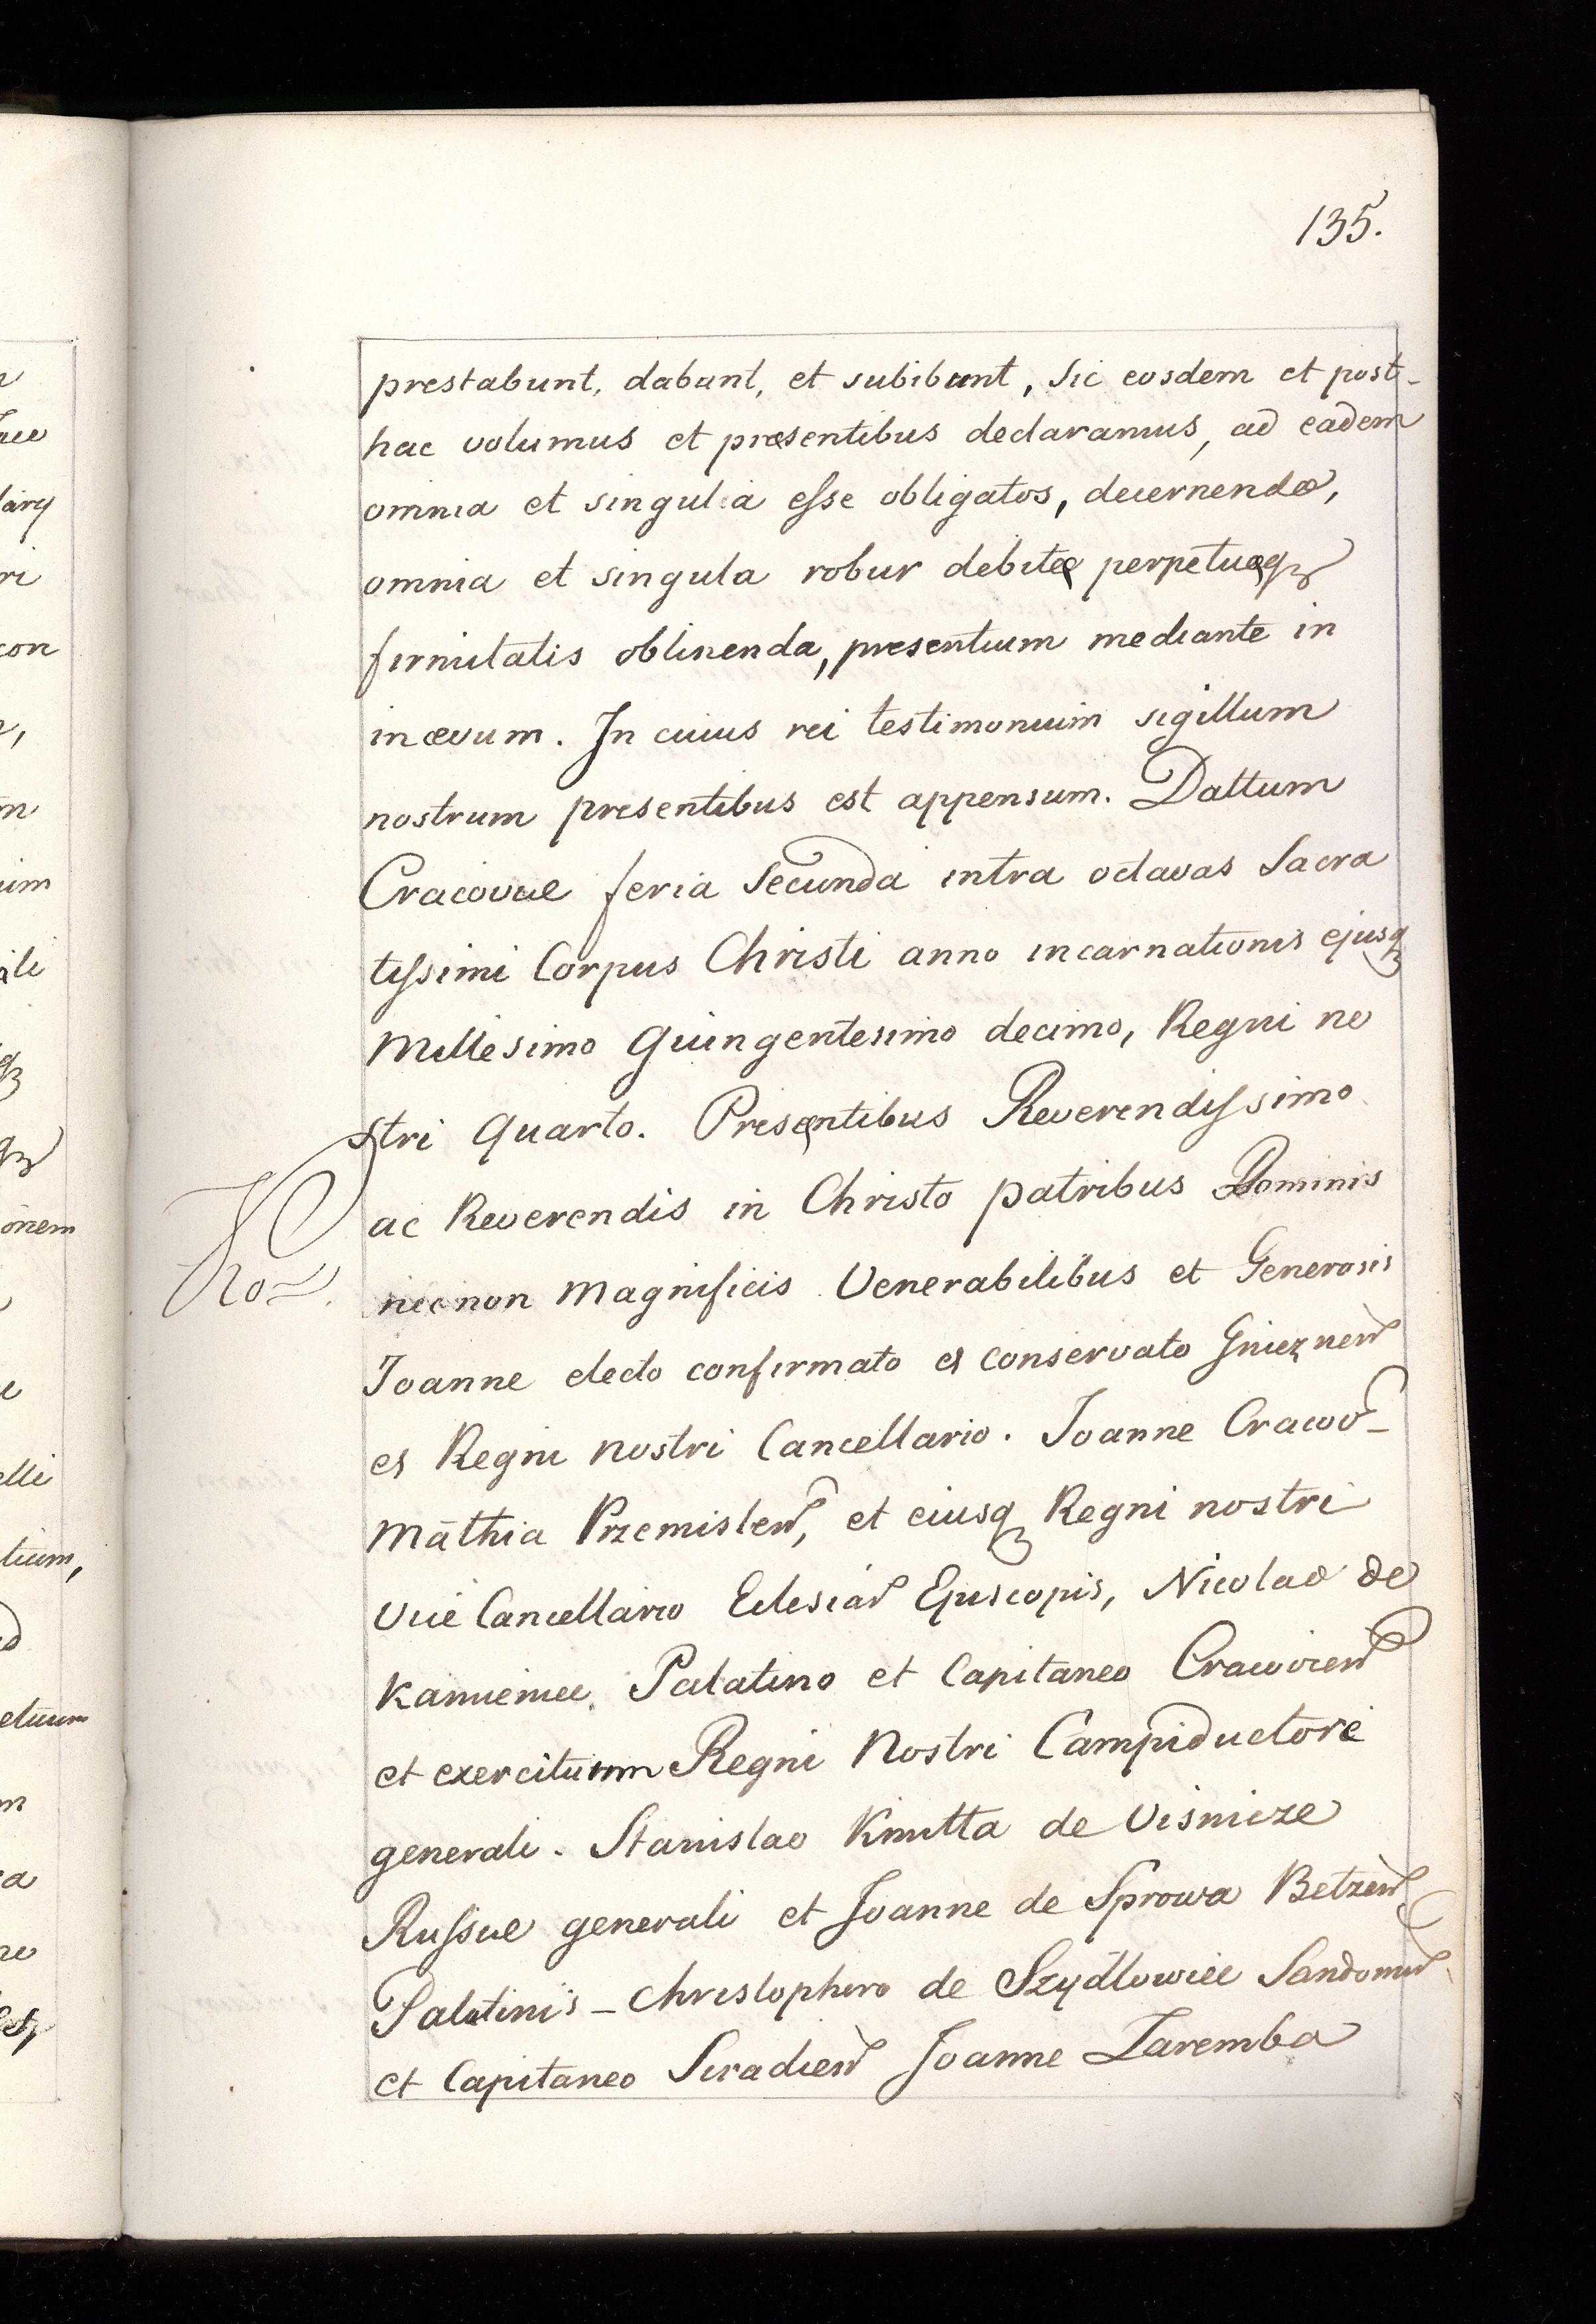 135.
prestabunt, dabunt, et subibunt, sic eosdem et post-
hac volumus et præsentibus declaramus, ad eadem
omnia et singula eſse obligatos, decernendo,
omnia et singula robur debitæ perpetuæqꝫ
firmitatis oblinenda, presentium mediante in
in ævum. In cuius rei testimonium sigillum
nostrum presentibus est appensum. Dattum
Cracoviæ feria Secunda intra octavas Sacra
tiſsimi Corpus Christi anno incarnationis ejusqꝫ
Millesimo Quingentesimo decimo, Regni no
stri Quarto. Presentibus Reverendiſsimo
ac Reverendis in Christo patribus Dominis
nec non Magnificis Venerabilibus et Generosis
Joanne electo confirmato et conservato Gnieznen̄
et Regni nostri Cancellario. Joanne Cracov̄-
Mathia Przemislen̄, et eiusqꝫ Regni nostri
Vice Cancellario Eclesiar̄ Episcopis, Nicolao de
Kamieniec, Palatino et Capitaneo Cracovien̄
et exercituum Regni Nostri Campiductore
generali. Stanislao Kmitta de Visnicze
Ruſsiæ generali et Joanne de Sprowa Betzen̄
Palatinis - Christophero de Szydlowiec Sandomir̄
et Capitaneo Siradien̄ Joanne Zaremba